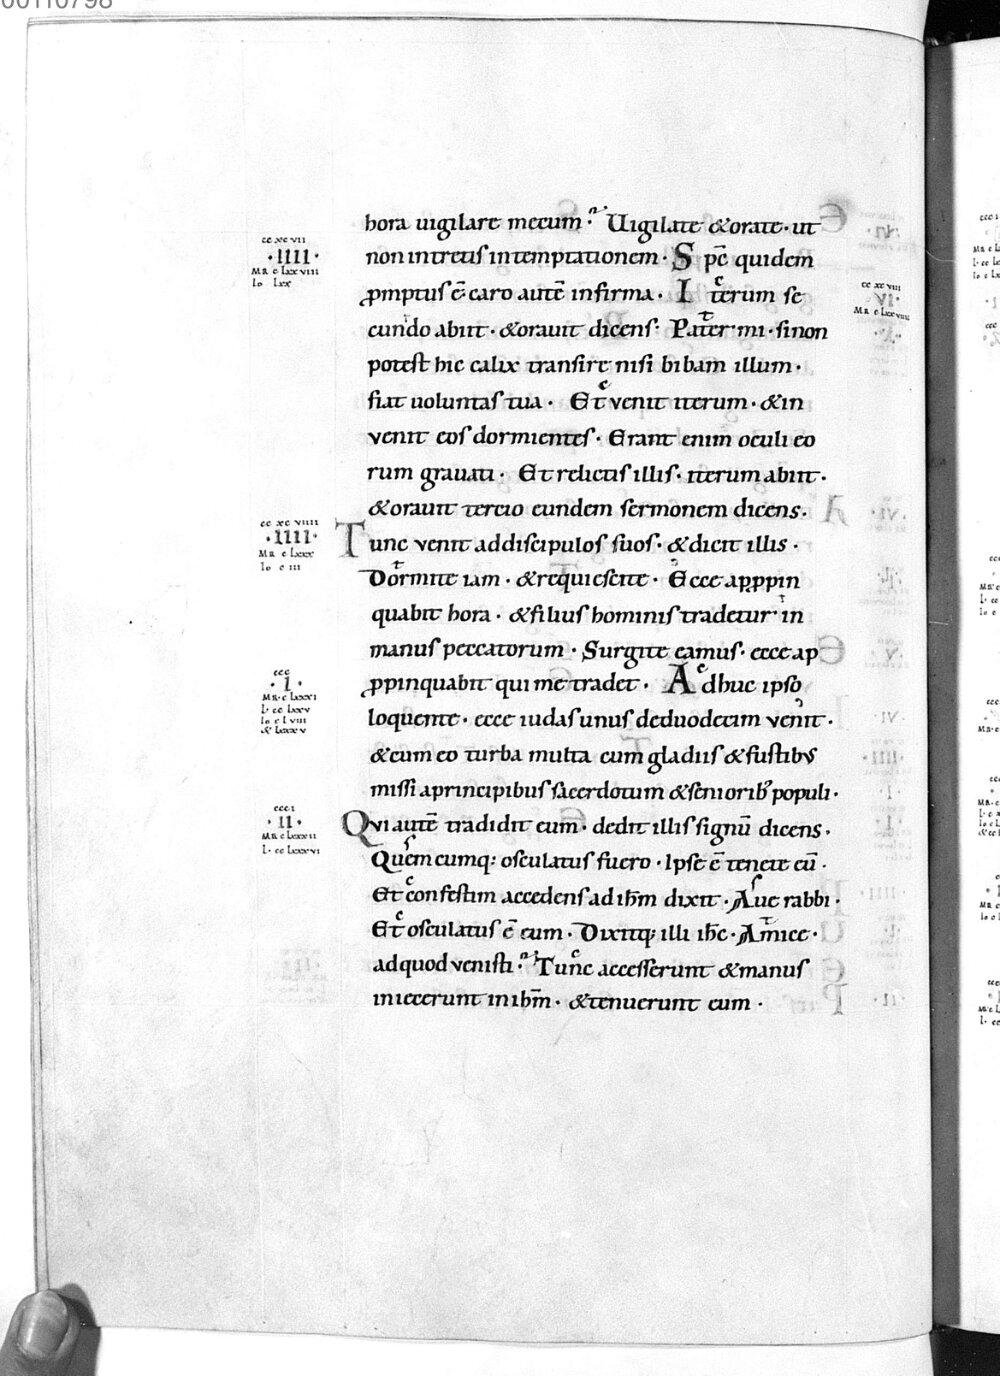 00110798
hora uigilare mecum· Uigilate &orate· ut
non intretis intemptationem· Sp̅c quidem
ꝓmptus e̅ caro aute̅ infirma· Iterum se
cundo abiit· &orauit dicens· Pater mi· sinon
potest hic calix transire nisi bibam illum·
fiat uoluntas tua· Et venit iterum· &in
venit eos dormientes· Erant enim oculi eo
rum grauati· Et relictis illis· iterum abiit·
&orauit tercio eundem sermonem dicens·
Tunc venit addiscipulos suos· &dicit illis·
Dormite iam· &requiescite· Ecce apꝓpin
quabit hora· &filius hominis tradetur in
manus peccatorum· Surgite eamus· ecce ap
ꝓpinquabit qui me tradet· Adhuc ipso
loquente· ecce iudas unus deduodecim venit·
&cum eo turba multa cum gladiis &fustibus
missi aprincipibus sacerdotum &seniorib; populi·
Qui aute̅ tradidit eum· dedit illis signu̅ dicens·
Quemcumq; osculatus fuero· Ipse e̅ tenete eu̅·
Et confestim accedens ad ih̅m dixit· Aue rabbi·
Et osculatus e̅ eum· Dixitq; illi ih̅c· Amice·
adquod venisti· Tunc accesserunt &manus
iniecerunt in ih̅m· &tenuerunt eum·
cc xc vii
·IIII·
MR c lxxviii
Io lxx
cc xc viii
·VI·
MR c lxxviiii
cc xc viiii
·IIII·
MR c lxxx
Io c iii
ccc
·I·
MR·c lxxxi
L· cc lxxv
Io c l viii
& lxxxv
ccc i
·II·
MR c lxxxii
L· cc lxxxvi